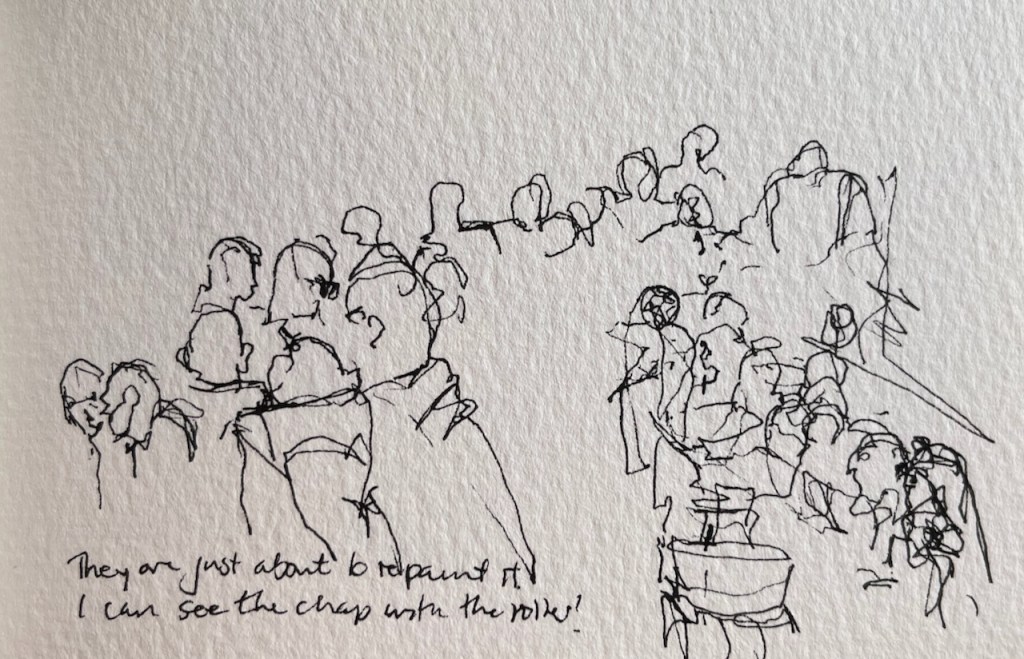 They are just about to repaint it
I can see the chap with the roller!